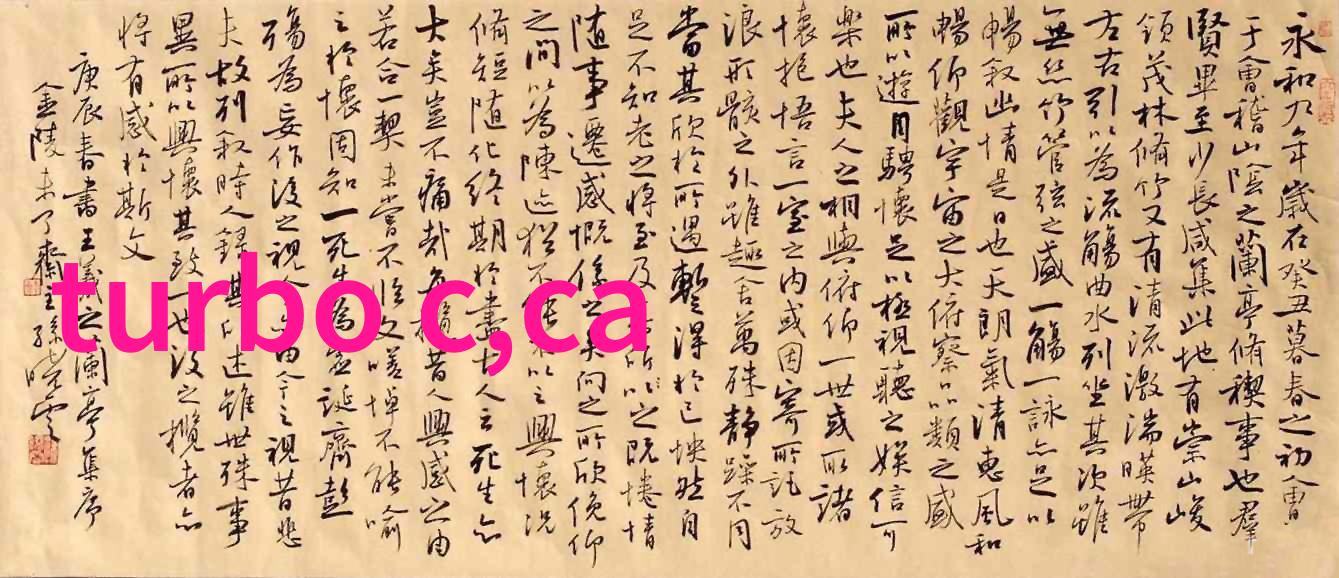 永和九年歲在癸丑暮春之初會
于會稽山陰之蘭亭脩稧事也羣
賢畢至少長咸集此地有崇山峻
領茂林脩竹又有清流激湍暎帶
左右引以為流觴曲水列坐其次雖
無絲竹管弦之盛一觴一詠亦足以
暢敘幽情是日也天朗氣清惠風和
暢仰觀宇宙之大俯察品類之盛
所以遊目騁懷足以極視聽之娛信可
樂也夫人之相與俯仰一世或取諸
懷抱悟言一室之內或因寄所託放
浪形骸之外雖趣舍萬殊靜躁不同
當其欣於所遇暫得於己怏然自
足不知老之將至及所以之既惓情
随事遷感慨係之矣向之所欣俛仰
之間以為陳迹猶不能不以之興懷況
脩短随化終期於盡古人云死生亦
大矣豈不痛哉每攬昔人興感之由
若合一契未嘗不臨文嗟悼不能喻
之於懷固知一死生為虛誕齊彭
殤為妄作後之視今亦由今之視昔悲
夫故列敘時人錄其所述雖世殊事
異所以興懷其致一也後之攬者亦
將有感於斯文
庚辰春書王羲之蘭亭集序
金陵未了齋主孫曉雲
turbo c,ca